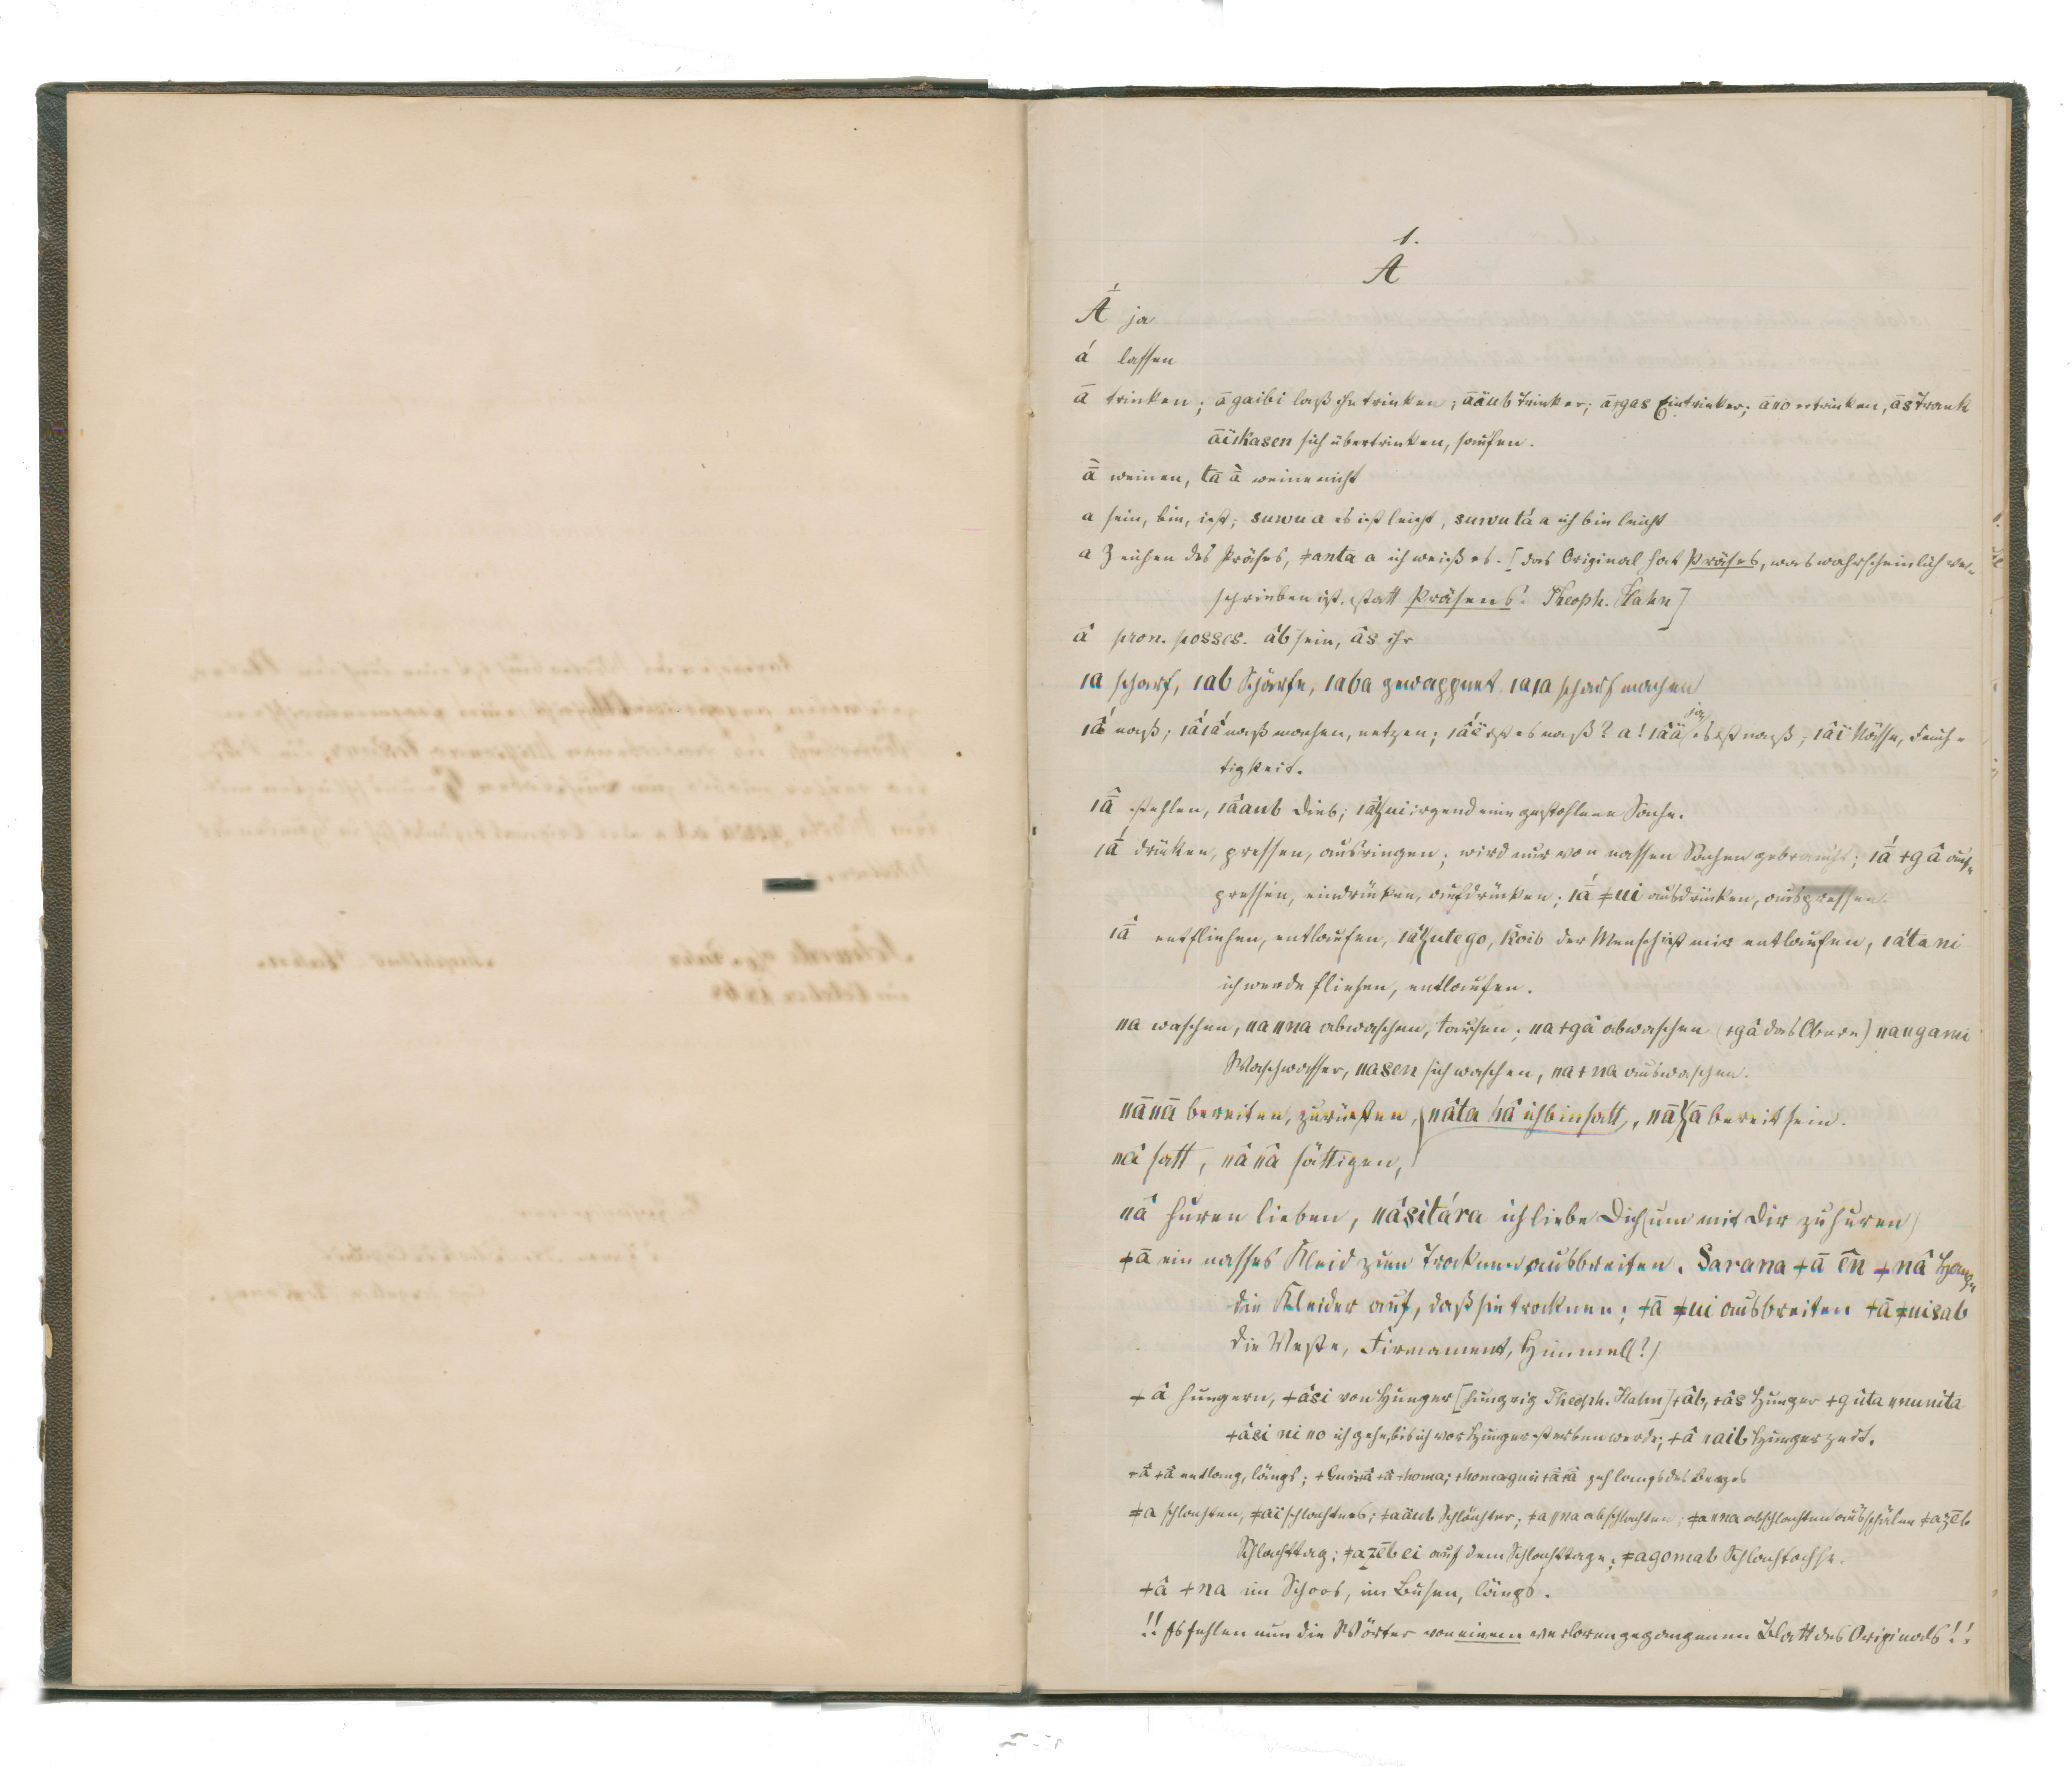 1.
A
Á ja
á lassen
ā trinken; āgaibi laß ihn trinken; āäub Trinker; āχgas Eintrinker; āǁo ertrinken, ās Trank
āïıkasen sich übertrinken, saufen.
ā̀ weinen, tā ā̀ weine nicht
a sein, bin, ist; suwu a es ist leicht, suwu tá a ich bin leicht
a Zeichen des Präses, ǂanta a ich weiß es. [das Original hat Präses, was wahrscheinlich ver-
schrieben ist. statt Präsens! Theoph. Hahn]
â pron. posses. âb sein, âs ihr
ıa scharf, ıab Schärfe, ıaba gewappnet ıaıa scharf machen
ıấ naß; ıấıấ naß machen, netzen; ıấï ist es naß? a! ıâä ja es ist naß; ıâï Nässe, Feuch-
tigkeit.
ıā̂ stehlen, ıā̂aub Dieb; ıā̂χui irgend eine gestohlene Sache.
ıā́ drücken, pressen, ausringen; wird nur von nassen Sachen gebraucht; ıā́ +gâ auf-
pressen, eindrücken, aufdrücken; ıā́ ǂui ausdrücken, auspressen.
ıā̂ entfliehen, entlaufen, ıā̂χutego, koib der Mensch ist mir entlaufen, ıâta ni
ich werde fliehen, entlaufen.
ǁa waschen, ǁaǁna abwaschen, taufen; ǁa+gâ abwaschen (+gâ das Obere) ǁaǁgami
Waschwasser, ǁasen sich waschen, ǁa+na auswaschen.
ǁāǁā bereiten, zurüsten, ǁâta hâ ich bin satt, ǁāχā bereit sein.
ǁâ satt, ǁâǁâ sättigen,
ǁâ huren lieben, ǁâsitára ich liebe Dich (um mit Dir zu huren)
+ā ein nasses Kleid zum Trocknen ausbreiten. Sarana +ā ên +nâ Hange
die Kleider auf, daß sie trocknen; +ā ǂui ausbreiten +āǂuisab
die Veste, Firmament, Himmel(?)
+â hungern, +âsi von Hunger [hungrig Theoph. Hahn] +âb, +âs Hunger +gûta
+âsi ni ǁo ich gehe, bis ich vor Hunger sterben werde; +â ıaib Hungerzeit.
+â +â entlang, längs; +homa; geh längs des Berges
ǂa schlachten, ǂaï schlachte es; ǂaäub Schlächter; ǂaǁna abschlachten; ǂaǁna abschlachten ausschälen ǂazēb
Schlachttag; ǂazēb ei auf dem Schlachttage; ǂagomab Schlachtochse.
+â +na im Schoos, im Busen, längs.
!! Es fehlen nun die Wörter von einem verlorengegangenen Blatt des Originals!!